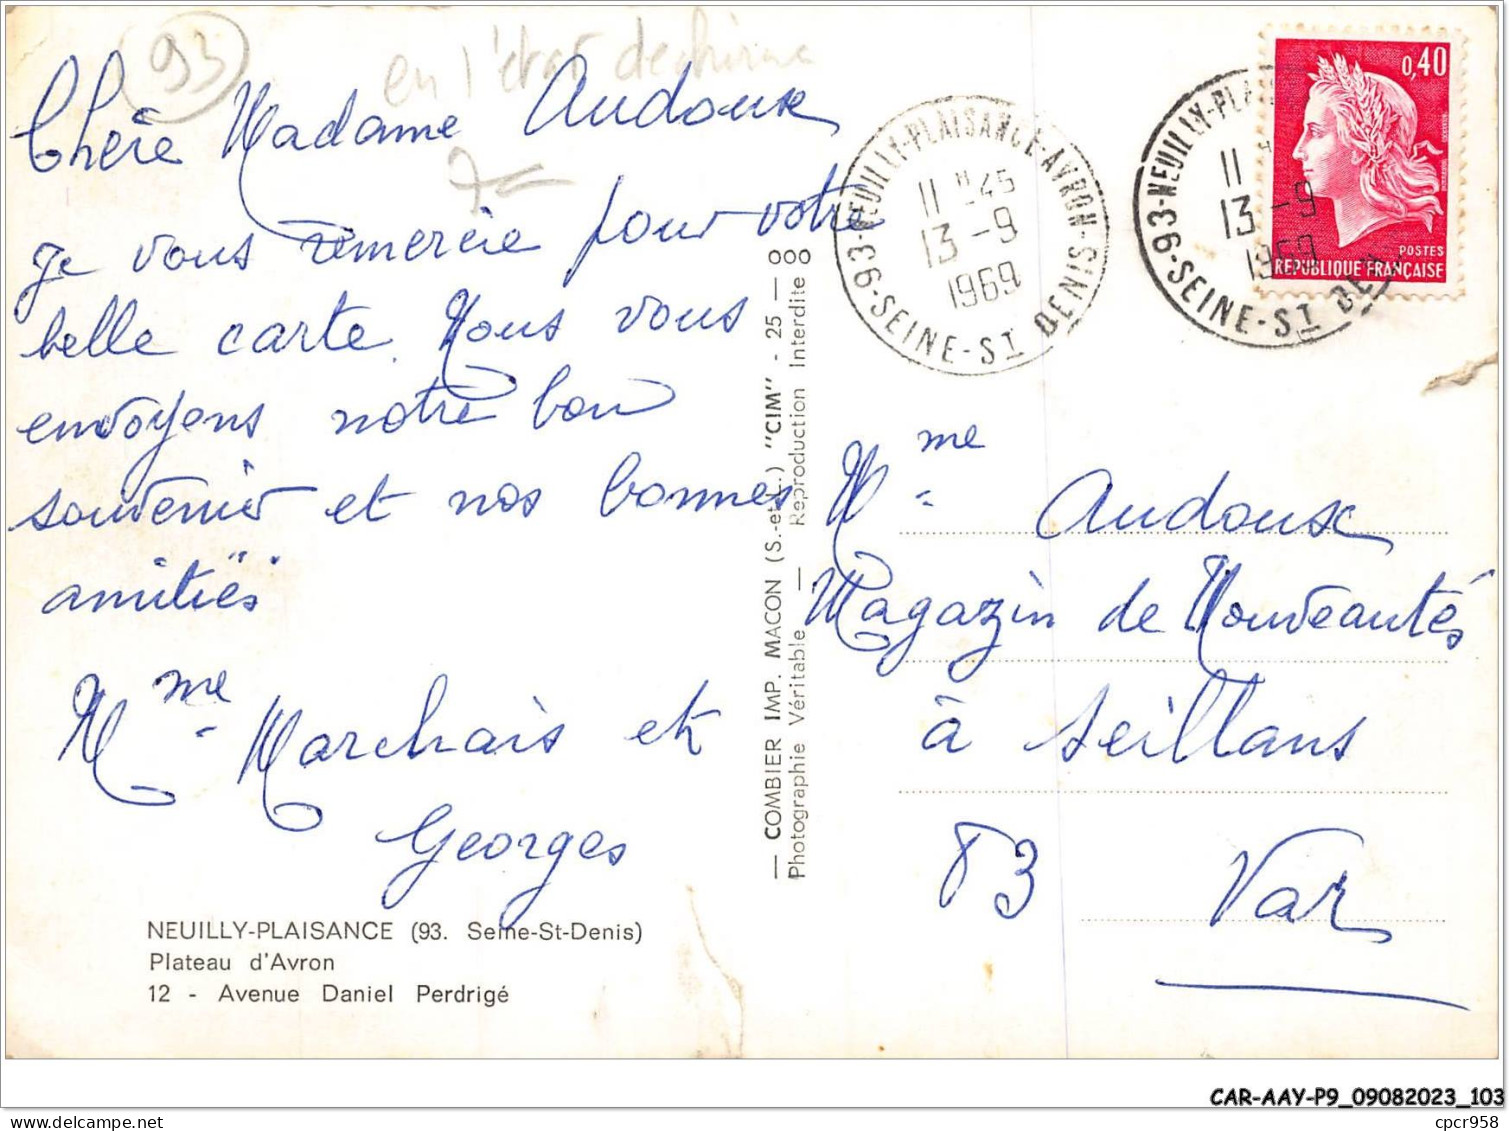 93
en l'état déchirure
Chère Madame Audoux
je vous remercie pour votre
belle carte. Nous vous
envoyons notre bon
souvenir et nos bonnes
amitiés
Mme Marchais et
Georges
NEUILLY-PLAISANCE (93. Seine-St-Denis)
Plateau d'Avron
12 - Avenue Daniel Perdrigé
— COMBIER IMP. MACON (S.-et-L.) "CIM" - 25 — 000
Photographie Véritable — Reproduction Interdite
93-NEUILLY-PLAISANCE-AVRON-SEINE-ST DENIS
11 H 45
13 - 9
1969
93-NEUILLY-PLAI
SEINE-ST DENI
11
13 - 9
1969
0,40
POSTES
REPUBLIQUE FRANÇAISE
Mme Audoux
Magazin de Nouveautés
à Seillans
83 Var
CAR-AAY-P9_09082023_103
cpcr958